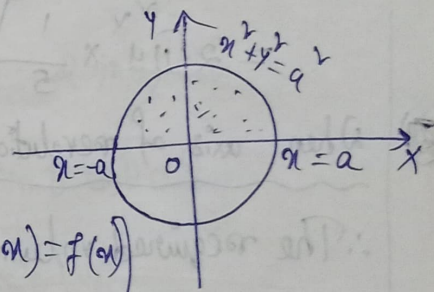 Y
x²+y²=a²
x=-a
O
x = a
X
x)=f(x)